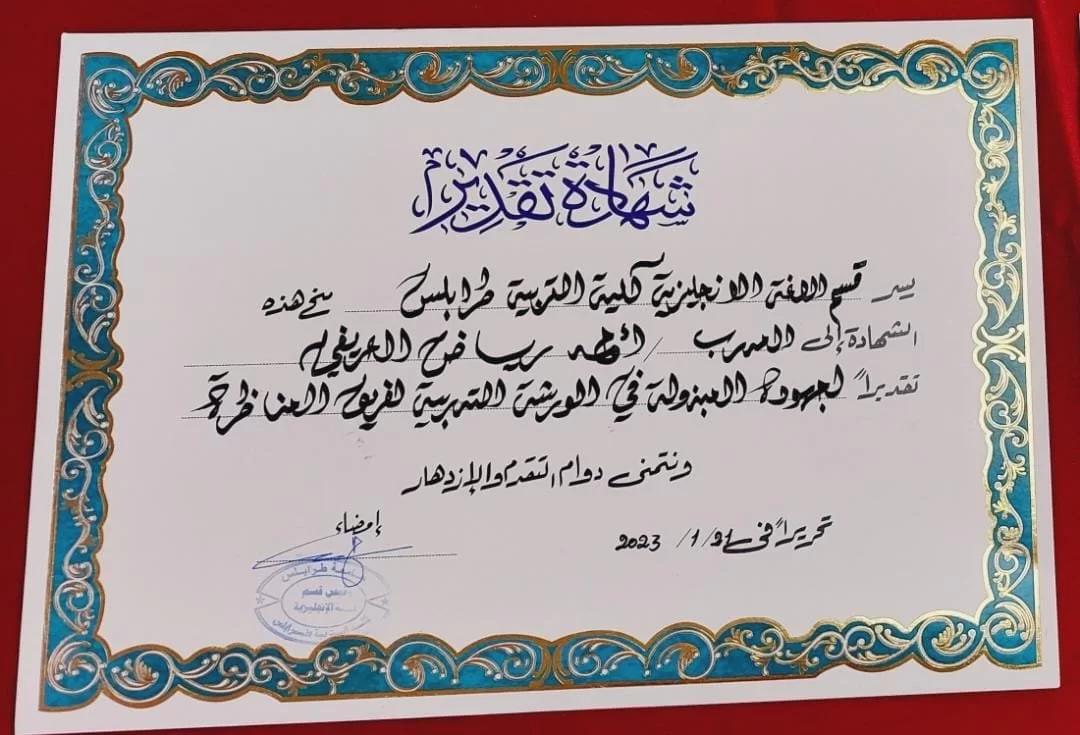 شهادة تقدير
يسر قسم الاغة الانجليزية كلية التربية طرابلس منح هذه
الشهادة إلى المدرب / أحمد رياض العريفي
تقديراً لجهوده المبذولة في الورشة التدربية لفريق المناظرة
ونتمنى دوام التقدم والإزدهار
تحريراً في 21/ 1/ 2023
إمضاء
جامعة طرابلس
رئيس قسم
اللغة الإنجليزية
كلية التربية طرابلس